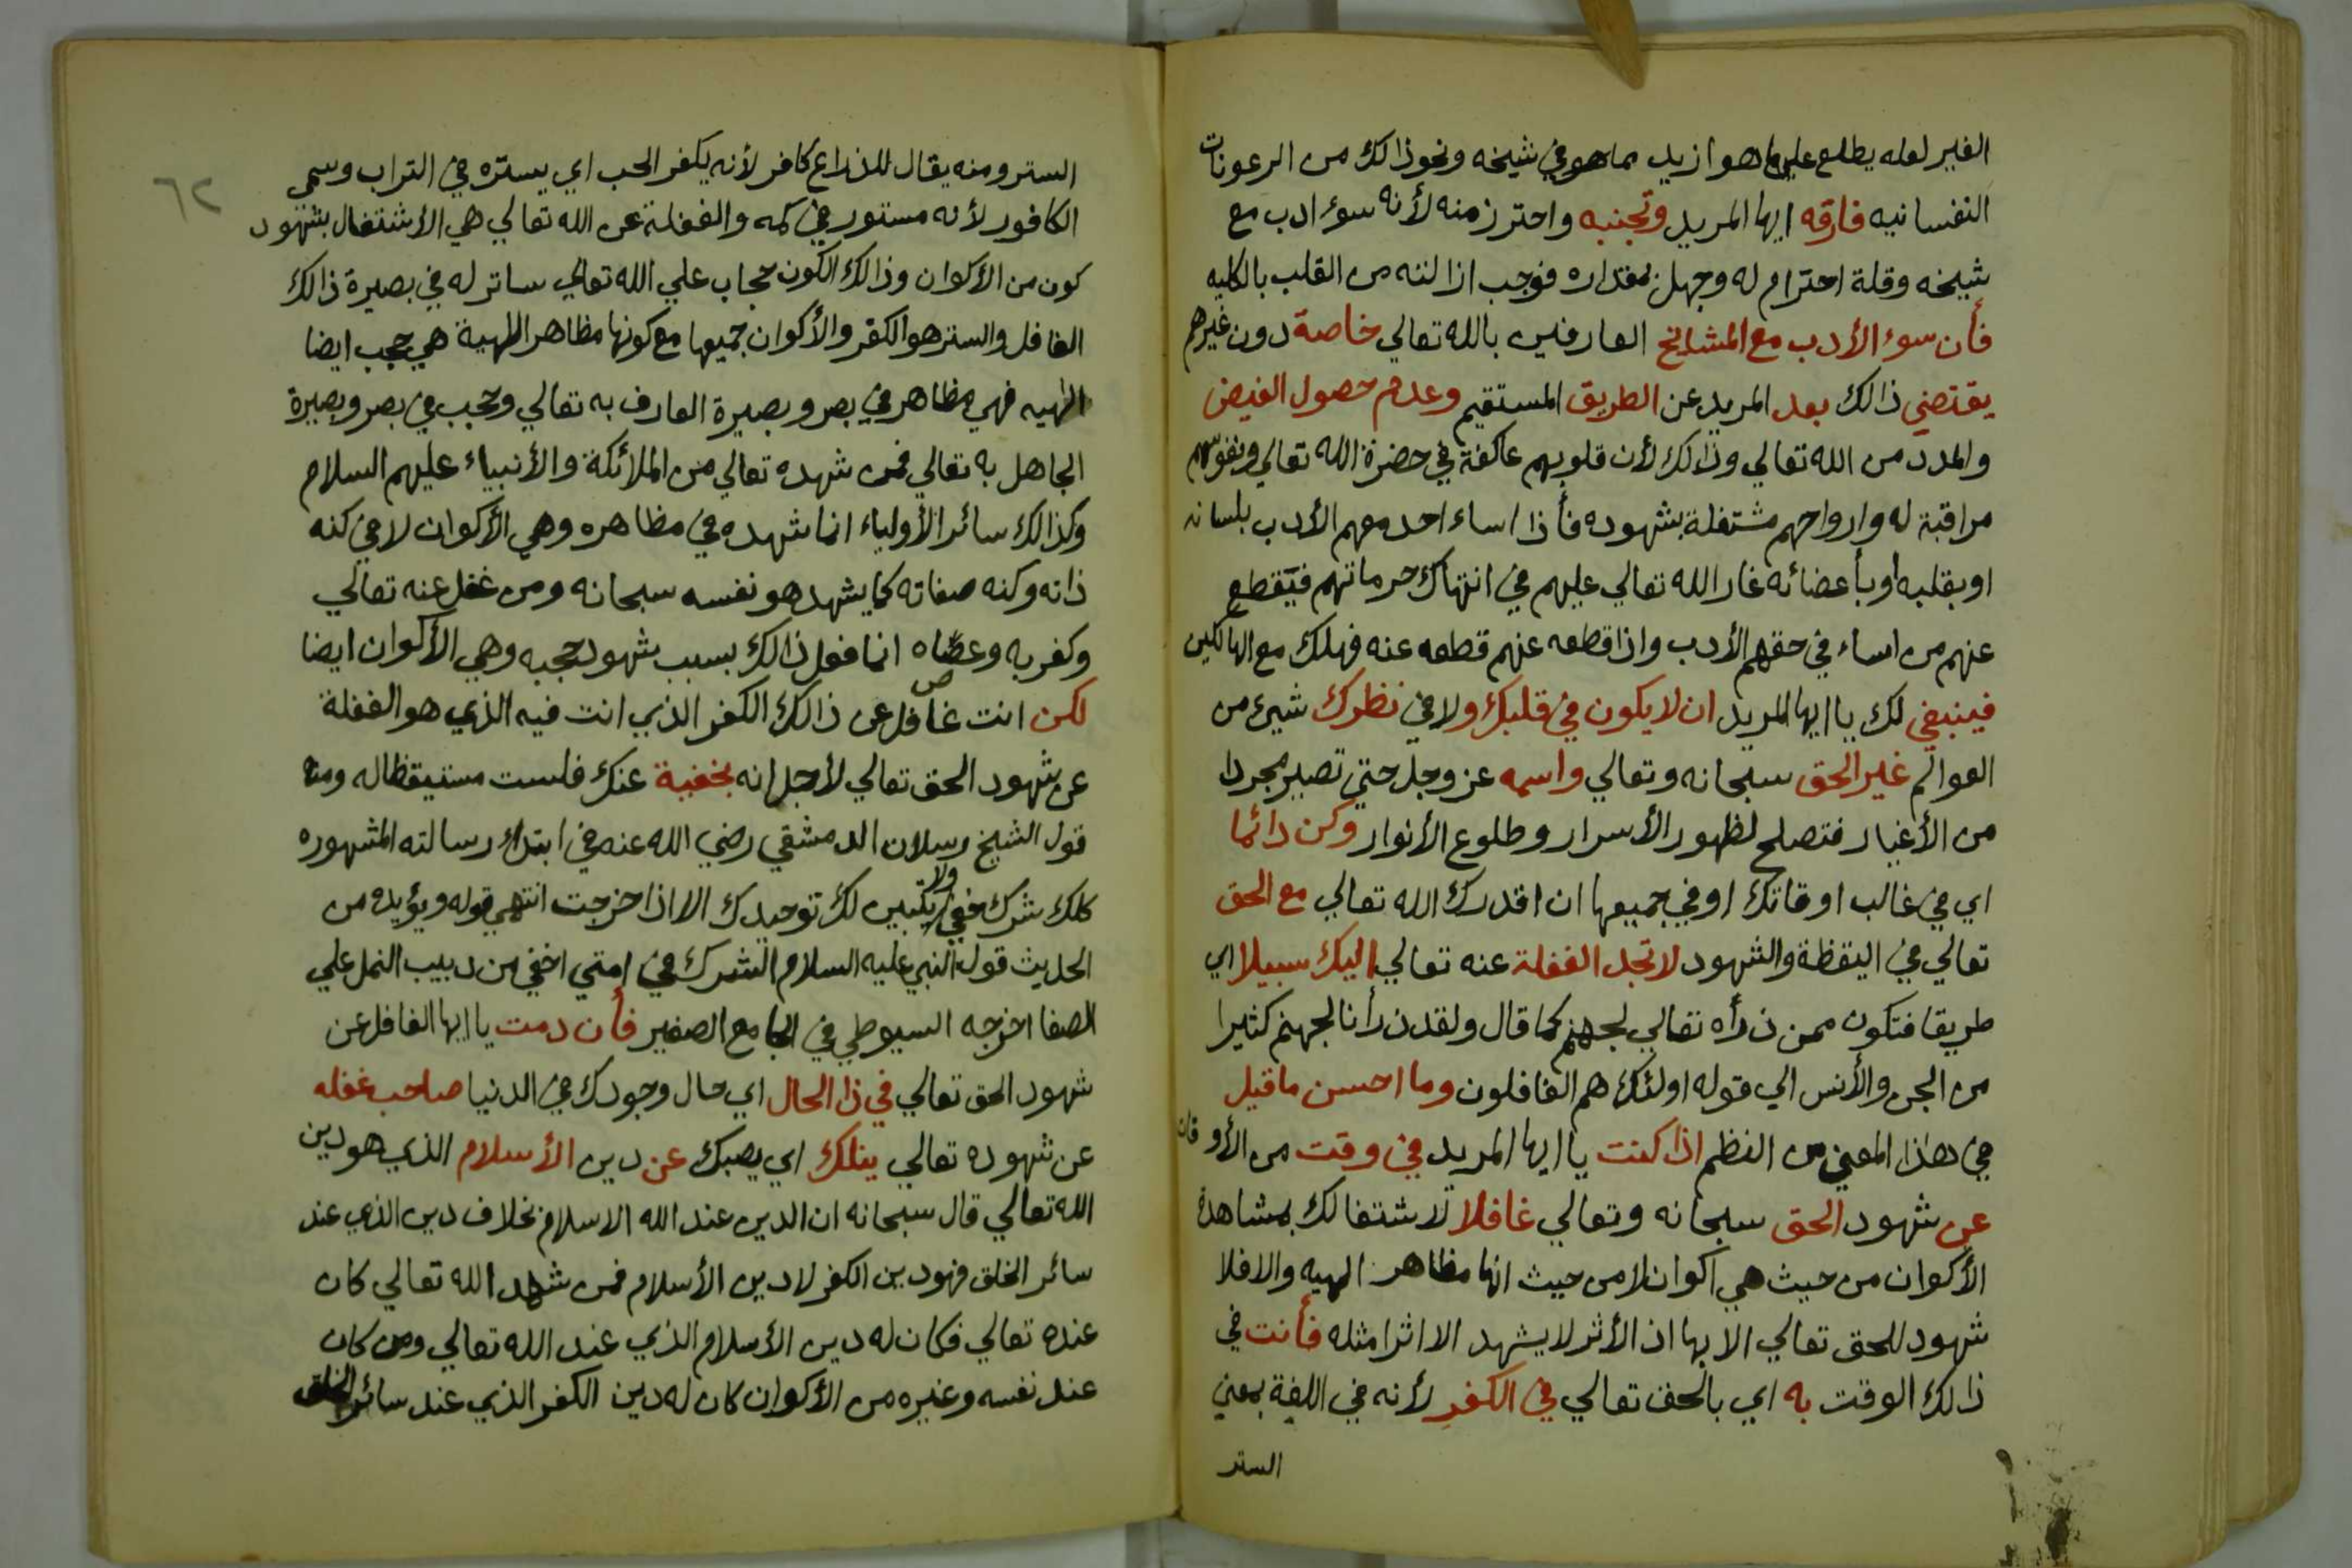 الغير لعله يطلع علي ما هو ازيد مما هو في شيخه ونحو ذالك من الرعونات
النفسانيه فارقه ايها المريد وتجنبه واحترز منه لأنه سوء ادب مع
شيخه وقلة احترام له وجهل بمقداره فوجب ازالته من القلب بالكليه
فأن سوء الأدب مع المشايخ العارفين بالله تعالي خاصة دون غيرهم
يقتضي ذالك بعد المريد عن الطريق المستقيم وعدم حصول الفيض
والمدد من الله تعالي وذالك لأن قلوبهم عاكفة في حضرة الله تعالي ونفوسهم
مراقبة له وارواحهم مشتغلة بشهوده فأذا اساء احد معهم الأدب بلسانه
او بقلبه أو بأعضائه غار الله تعالي عليهم في انتهاك حرماتهم فيقطع
عنهم من اساء في حقهم الأدب واذا قطعه عنهم قطعه عنه فهلك مع الهالكين
فينبغي لك يا ايها المريد ان لا يكون في قلبك ولا في نظرك شيئ من
العوالم غير الحق سبحانه وتعالي واسمه عز وجل حتي تصير مجردا
من الأغيار فتصلح لظهور الأسرار وطلوع الأنوار وكن دائما
اي في غالب اوقاتك او في جميعها ان اقدرك الله تعالي مع الحق
تعالي في اليقظة والشهود لا تجد الغفلة عنه تعالي اليك سبيلا اي
طريقا فتكون ممن ذرأه تعالي لجهنم كما قال ولقد ذرأنا لجهنم كثيرا
من الجن والأنس الي قوله اولئك هم الغافلون وما احسن ما قيل
في هذا المعني من النظم اذا كنت يا ايها المريد في وقت من الأوقات
عن شهود الحق سبحانه وتعالي غافلا لاشتغالك بمشاهدة
الأكوان من حيث هي اكوان لا من حيث انها مظاهر الهيه والا فلا
شهود للحق تعالي الا بها اذ الأثر لا يشهد الا اثرا مثله فأنت في
ذالك الوقت به اي بالحق تعالي في الكفر لأنه في اللغة بمعني
الستر
٦٢
الستر ومنه يقال للزراع كافر لأنه يكفر الحب اي يستره في التراب وسمي
الكافور لأنه مستور في كمه والغفلة عن الله تعالي هي الأشتغال بشهود
كون من الأكوان وذالك الكون حجاب علي الله تعالي ساتر له في بصيرة ذالك
الغافل والستر هو الكفر والأكوان جميعها مع كونها مظاهر الهية هي حجب ايضا
الهيه فهي مظاهر في بصر وبصيرة العارف به تعالي وحجب في بصر وبصيرة
الجاهل به تعالي فمن شهده تعالي من الملائكة والأنبياء عليهم السلام
وكذالك سائر الأولياء انما شهده في مظاهره وهي الأكوان لا في كنه
ذاته وكنه صفاته كما يشهد هو نفسه سبحانه ومن غفل عنه تعالي
وكفر به وعصاه انما فعل ذالك بسبب شهود حجبه وهي الأكوان ايضا
لكن انت غافل عن ذالك الكفر الذي انت فيه الذي هو الغفلة
عن شهود الحق تعالي لأجل انه بخفية عنك فلست مستيقظا له ومنه
قول الشيخ رسلان الدمشقي رضي الله عنه في ابتداء رسالته المشهوره
كلك شرك خفي ولا يتبين لك توحيدك الا اذا خرجت انتهي قوله ويؤيده من
الحديث قول النبي عليه السلام الشرك في امتي اخفي من دبيب النمل علي
الصفا اخرجه السيوطي في الجامع الصغير فأن دمت يا ايها الغافل عن
شهود الحق تعالي في ذا الحال اي حال وجودك في الدنيا صاحب غفله
عن شهوده تعالي ينلك اي يصبك عن دين الأسلام الذي هو دين
الله تعالي قال سبحانه ان الدين عند الله الاسلام بخلاف دين الذي عند
سائر الخلق فهو دين الكفر لا دين الأسلام فمن شهد الله تعالي كان
عنده تعالي فكان له دين الأسلام الذي عند الله تعالي ومن كان
عند نفسه وغيره من الأكوان كان له دين الكفر الذي عند سائر الخلق